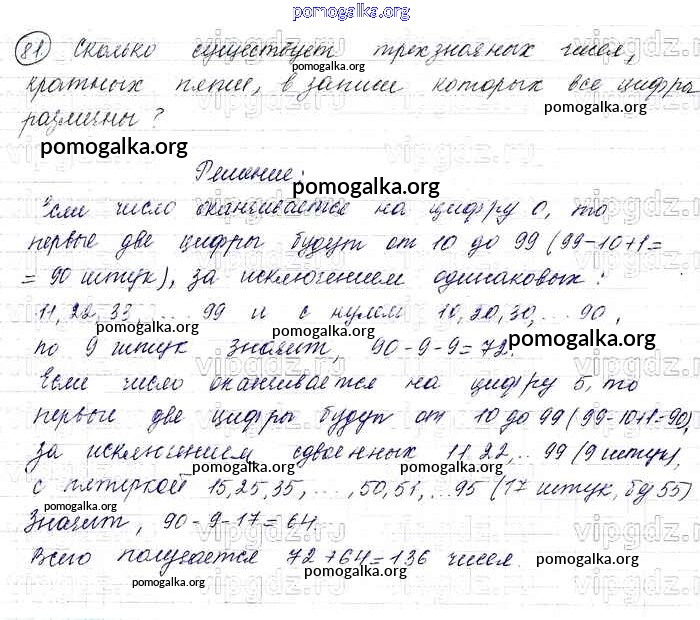 pomogalka.org
81. Сколько существует трехзначных чисел,
pomogalka.org
кратных пяти, в записи которых все цифры
pomogalka.org
различны?
pomogalka.org
Решение:
pomogalka.org
Если число оканчивается на цифру 0, то
первые две цифры будут от 10 до 99 (99-10+1=
pomogalka.org
= 90 штук), за исключением одинаковых:
11, 22, 33, ... 99 и с нулем 10, 20, 30, ... 90,
pomogalka.org pomogalka.org
по 9 штук значит, 90-9-9=72.
pomogalka.org
Если число оканчивается на цифру 5, то
pomogalka.org
первые две цифры будут от 10 до 99 (99-10+1=90)
pomogalka.org
за исключением сдвоенных 11, 22, ... 99 (9 штук),
pomogalka.org pomogalka.org
с пятеркой 15, 25, 35, ..., 50, 51, ... 95 (17 штук, без 55)
pomogalka.org
Значит, 90-9-17=64.
Всего получается 72+64=136 чисел.
pomogalka.org pomogalka.org
pomogalka.org